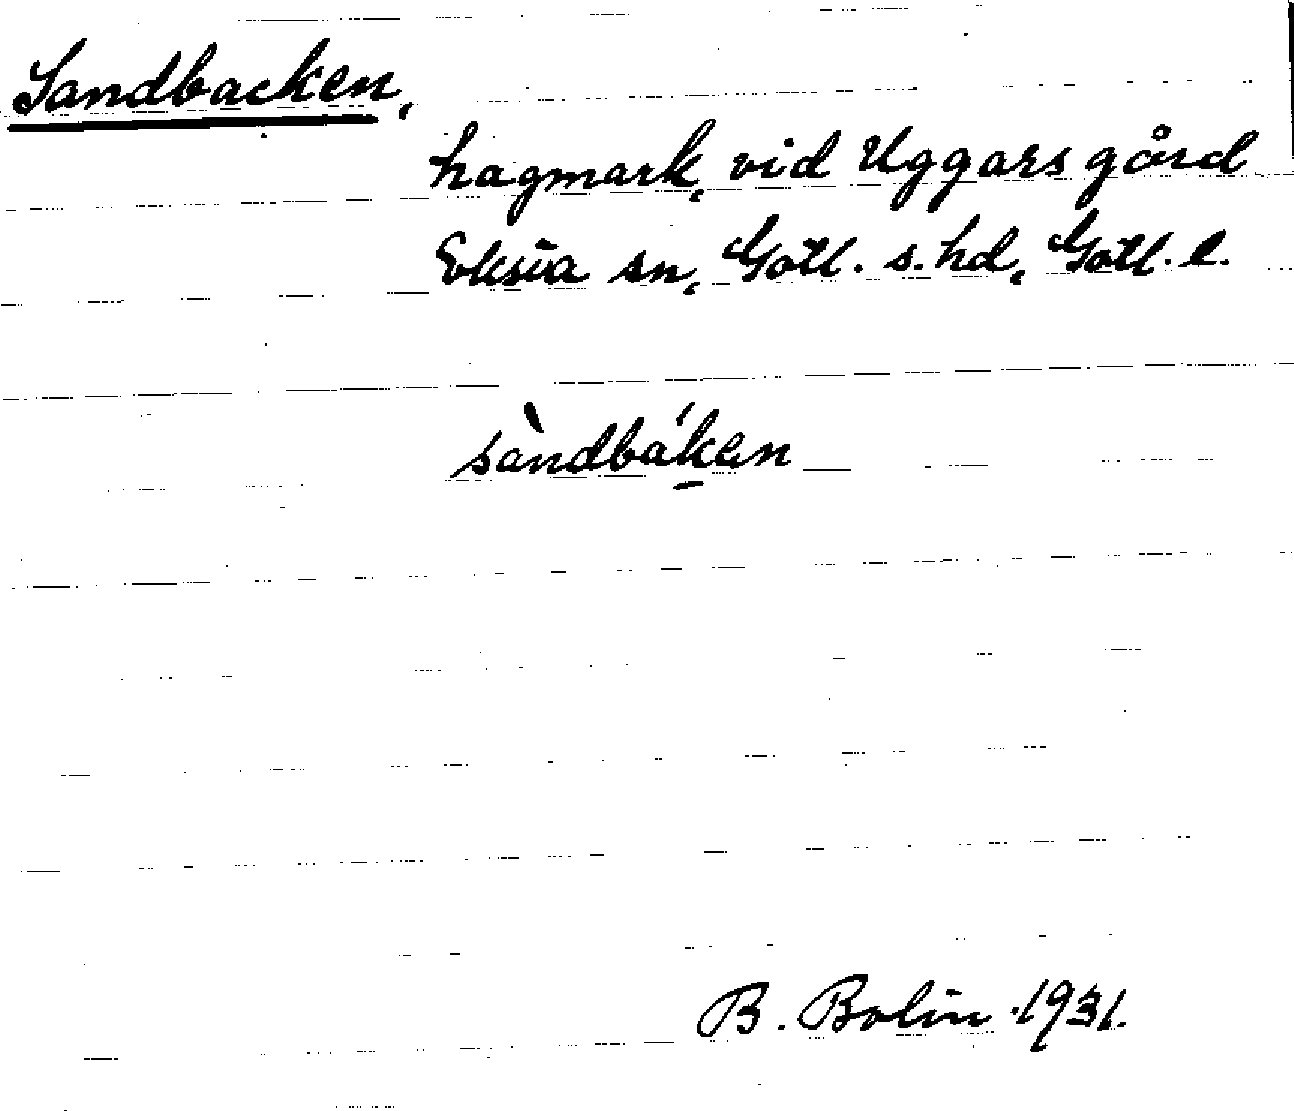 Sandbacken,
hagmark, vid Uggars gård
Eksta sn, Gotl. s. hd, Gotl. l.
sàndbák̲an
B. Bolin 1931.